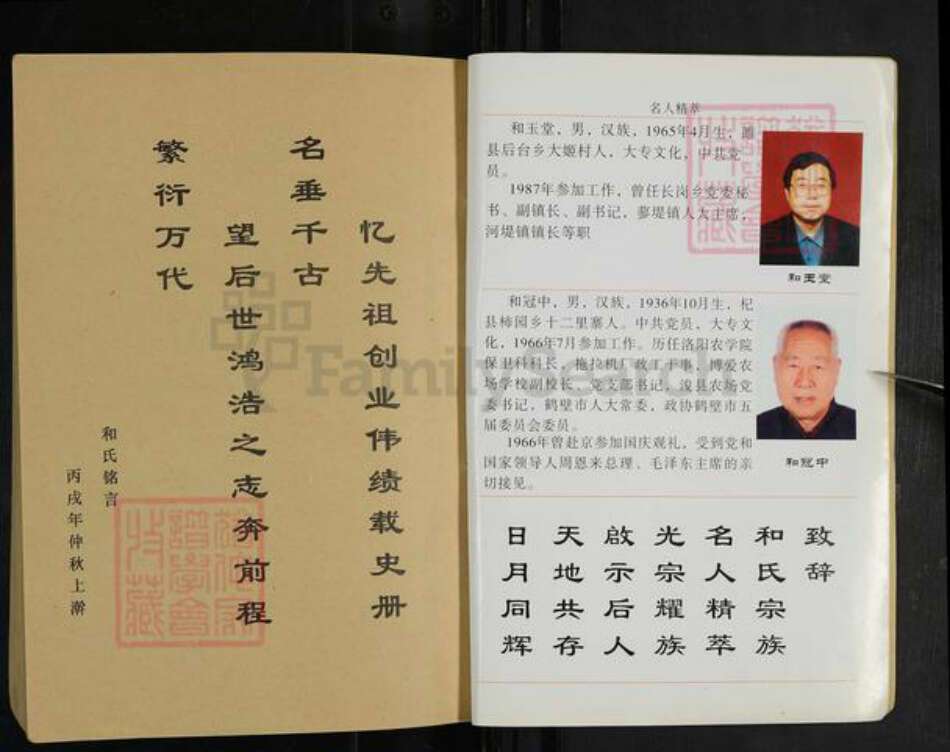 忆先祖创业伟绩载史册
名垂千古
望后世鸿浩之志奔前程
繁衍万代
和氏铭言
丙戌年仲秋上澣
名人精萃
和玉堂，男，汉族，1965年4月生，睢
县后台乡大姬村人，大专文化，中共党
员。
1987年参加工作，曾任长岗乡党委秘
书、副镇长、副书记，蓼堤镇人大主席，
河堤镇镇长等职
和玉堂
和冠中，男，汉族，1936年10月生，杞
县柿园乡十二里寨人。中共党员，大专文
化，1966年7月参加工作。历任洛阳农学院
保卫科科长，拖拉机厂政工干事，博爱农
场学校副校长、党支部书记，浚县农场党
委书记，鹤壁市人大常委，政协鹤壁市五
届委员会委员。
1966年曾赴京参加国庆观礼，受到党和
国家领导人周恩来总理、毛泽东主席的亲
切接见。
和冠中
致辞
和氏宗族
名人精萃
光宗耀族
啟示后人
天地共存
日月同辉
FamilySearch